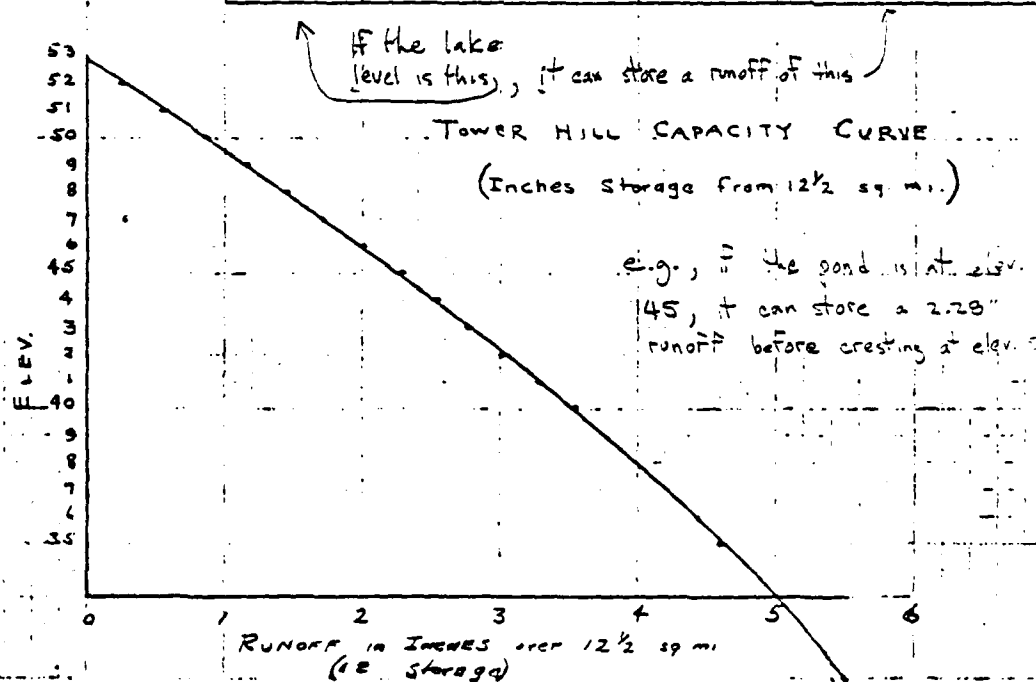 If the lake
level is this, it can store a runoff of this
TOWER HILL CAPACITY CURVE
(Inches Storage from 12 1/2 sq. mi.)
e.g., if the pond is at elev.
145, it can store a 2.28"
runoff before cresting at elev.
ELEV.
53
52
51
50
9
8
7
6
45
4
3
2
1
40
9
8
7
6
35
0 1 2 3 4 5 6
RUNOFF in INCHES over 12 1/2 sq mi
(i.e. Storage)